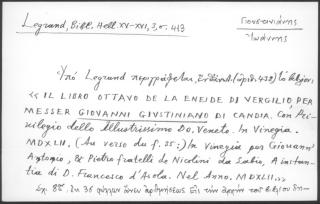 Legrand, Bibl. Hell. XV-XVI, 3, σ. 413
Γιουστινιάνης
Ἰωάννης
Ὑπὸ Legrand περιγράφεται, (ἀριθ. 438) τὸ βιβλίον,
« IL LIBRO OTTAVO DE LA ENEIDE DI VERGILIO, PER
MESSER GIOVANNI GIUSTINIANO DI CANDIA. Con Pri-
vilegio dello Illustrissimo Do. Veneto. In Vinegia.
MDXLII. (Au verso du f. 35:) In Vinegia per Giovann'
Antonio, & Pietro fratelli de Nicolini da Sabio, A instan-
tia di D. Francesco d'Asola. Nel Anno. MDXLII.»
Σχ. 8ον. Ἐκ 36 φύλλων ἄνευ ἀριθμήσεως. Εἰς τὴν ἀρχὴν τοῦ βιβλίου